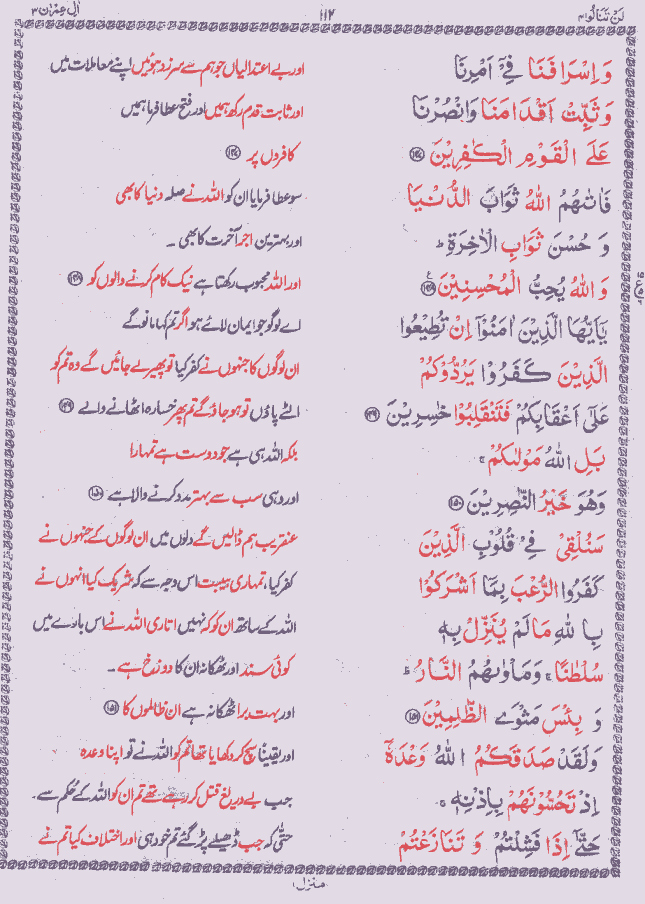 لَنْ تَنَالُوا۴ ۱۱۲ اٰلِ عِمْرٰن۳
وَ اِسْرَافَنَا فِیْۤ اَمْرِنَا اور بے اعتدالیاں جو ہم سے سرزد ہوئیں اپنے معاملات میں
وَ ثَبِّتْ اَقْدَامَنَا وَانْصُرْنَا اور ثابت قدم رکھ ہمیں اور فتح عطا فرما ہمیں
عَلَى الْقَوْمِ الْكٰفِرِیْنَ ﴿۱۴۷﴾ کافروں پر ﴿۱۴۷﴾
فَاٰتٰىهُمُ اللّٰهُ ثَوَابَ الدُّنْیَا سو عطا فرمایا ان کو اللہ نے صلہ دنیا کا بھی
وَ حُسْنَ ثَوَابِ الْاٰخِرَةِ ؕ اور بہترین اجر آخرت کا بھی ۔
وَ اللّٰهُ یُحِبُّ الْمُحْسِنِیْنَ ﴿۱۴۸﴾ ع اور اللہ محبوب رکھتا ہے نیک کام کرنے والوں کو ﴿۱۴۸﴾
یٰۤاَیُّهَا الَّذِیْنَ اٰمَنُوْۤا اِنْ تُطِیْعُوا اے لوگو جو ایمان لائے ہو اگر تم کہا مانو گے
الَّذِیْنَ كَفَرُوْا یَرُدُّوْكُمْ ان لوگوں کا جنہوں نے کفر کیا تو پھیر لے جائیں گے وہ تم کو
عَلٰۤى اَعْقَابِكُمْ فَتَنْقَلِبُوْا خٰسِرِیْنَ ﴿۱۴۹﴾ الٹے پاؤں تو ہو جاؤ گے تم پھر خسارہ اٹھانے والے ﴿۱۴۹﴾
بَلِ اللّٰهُ مَوْلٰىكُمْ ۚ بلکہ اللہ ہی ہے جو دوست ہے تمہارا
وَهُوَ خَیْرُ النّٰصِرِیْنَ ﴿۱۵۰﴾ اور وہی سب سے بہتر مدد کرنے والا ہے ﴿۱۵۰﴾
سَنُلْقِیْ فِیْ قُلُوْبِ الَّذِیْنَ عنقریب ہم ڈالیں گے دلوں میں ان لوگوں کے جنہوں نے
كَفَرُوا الرُّعْبَ بِمَاۤ اَشْرَكُوْا کفر کیا، تمہاری ہیبت اس وجہ سے کہ شریک کیا انہوں نے
بِاللّٰهِ مَا لَمْ یُنَزِّلْ بِهٖ اللہ کے ساتھ ان کو کہ نہیں اتاری اللہ نے اس بارے میں
سُلْطٰنًا ۚ وَمَاْوٰىهُمُ النَّارُ ؕ کوئی سند اور ٹھکانہ ان کا دوزخ ہے ۔
وَ بِئْسَ مَثْوَى الظّٰلِمِیْنَ ﴿۱۵۱﴾ اور بہت برا ٹھکانہ ہے ان ظالموں کا ﴿۱۵۱﴾
وَلَقَدْ صَدَقَكُمُ اللّٰهُ وَعْدَهٗۤ اور یقیناً سچ کر دکھایا تھا تم کو اللہ نے تو اپنا وعدہ
اِذْ تَحُسُّوْنَهُمْ بِاِذْنِهٖ ۚ جب بے دریغ قتل کر رہے تھے تم ان کو اللہ کے حکم سے ۔
حَتّٰۤى اِذَا فَشِلْتُمْ وَ تَنَازَعْتُمْ حتیٰ کہ جب ڈھیلے پڑ گئے تم خود ہی اور اختلاف کیا تم نے
منزل۱